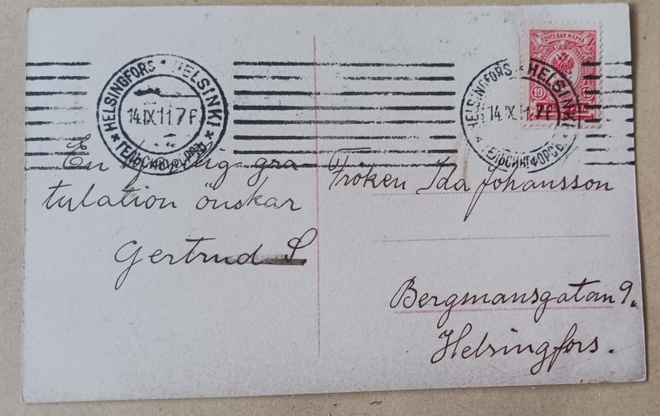 HELSINGFORS * HELSINKI * ГЕЛЬСИНГФОРСЪ
14.IX.11 7 F
HELSINGFORS * HELSINKI * ГЕЛЬСИНГФОРСЪ
14.IX.11 7 F
ПОЧТОВАЯ МАРКА
10
En gra
tulation önskar
Gertrud S
Fröken Ida Johansson
Bergmansgatan 9.
Helsingfors.